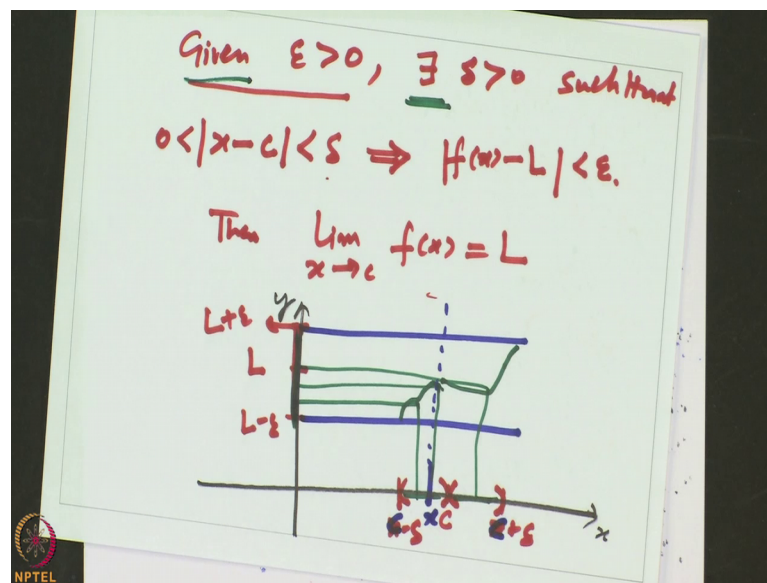 Given ε>0, ∃ δ>0 such that
0<|x-c|<δ ⇒ |f(x)-L|<ε.
Then Lim f(x) = L
x→c
y
L+ε
L
L-ε
c-δ x c c+δ
x
NPTEL